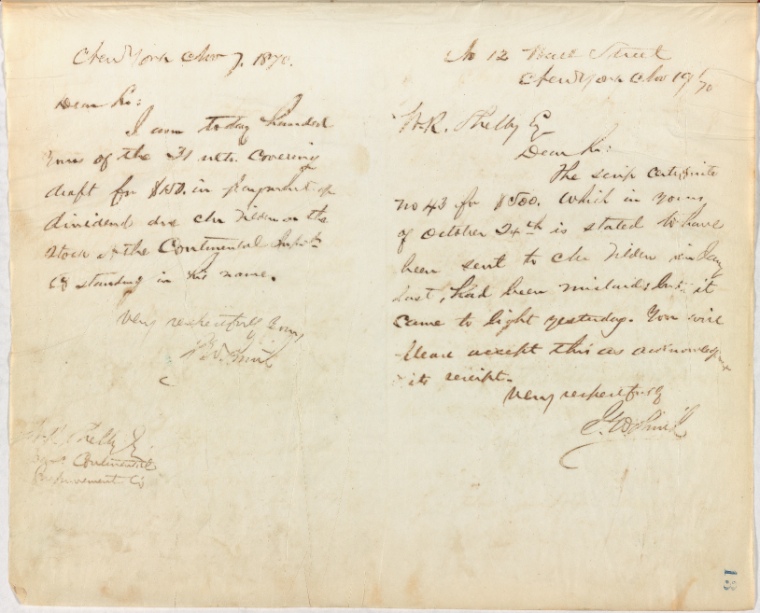 New York Nov 7. 1870.
Dear Sir:
I am today handed
yours of the 31 ulto. covering
draft for $150. in payment of
dividend due Mr Tilden on the
stock of the Continental Imp't
Co standing in his name.
Very respectfully Yours,
J. D. Smith
W.R. Shelby Esq.
Continental
Improvement Co
No 12 Wall Street
New York Nov 19th/70
W.R. Shelby Esq
Dear Sir:
The scrip certificate
no 43 for $500. which in yours
of October 24th is stated to have
been sent to Mr Tilden in Jany
last, had been mislaid; but it
came to light yesterday. You will
please accept this as acknowledg
its receipt.
Very respectfully
J. D. Smith
181